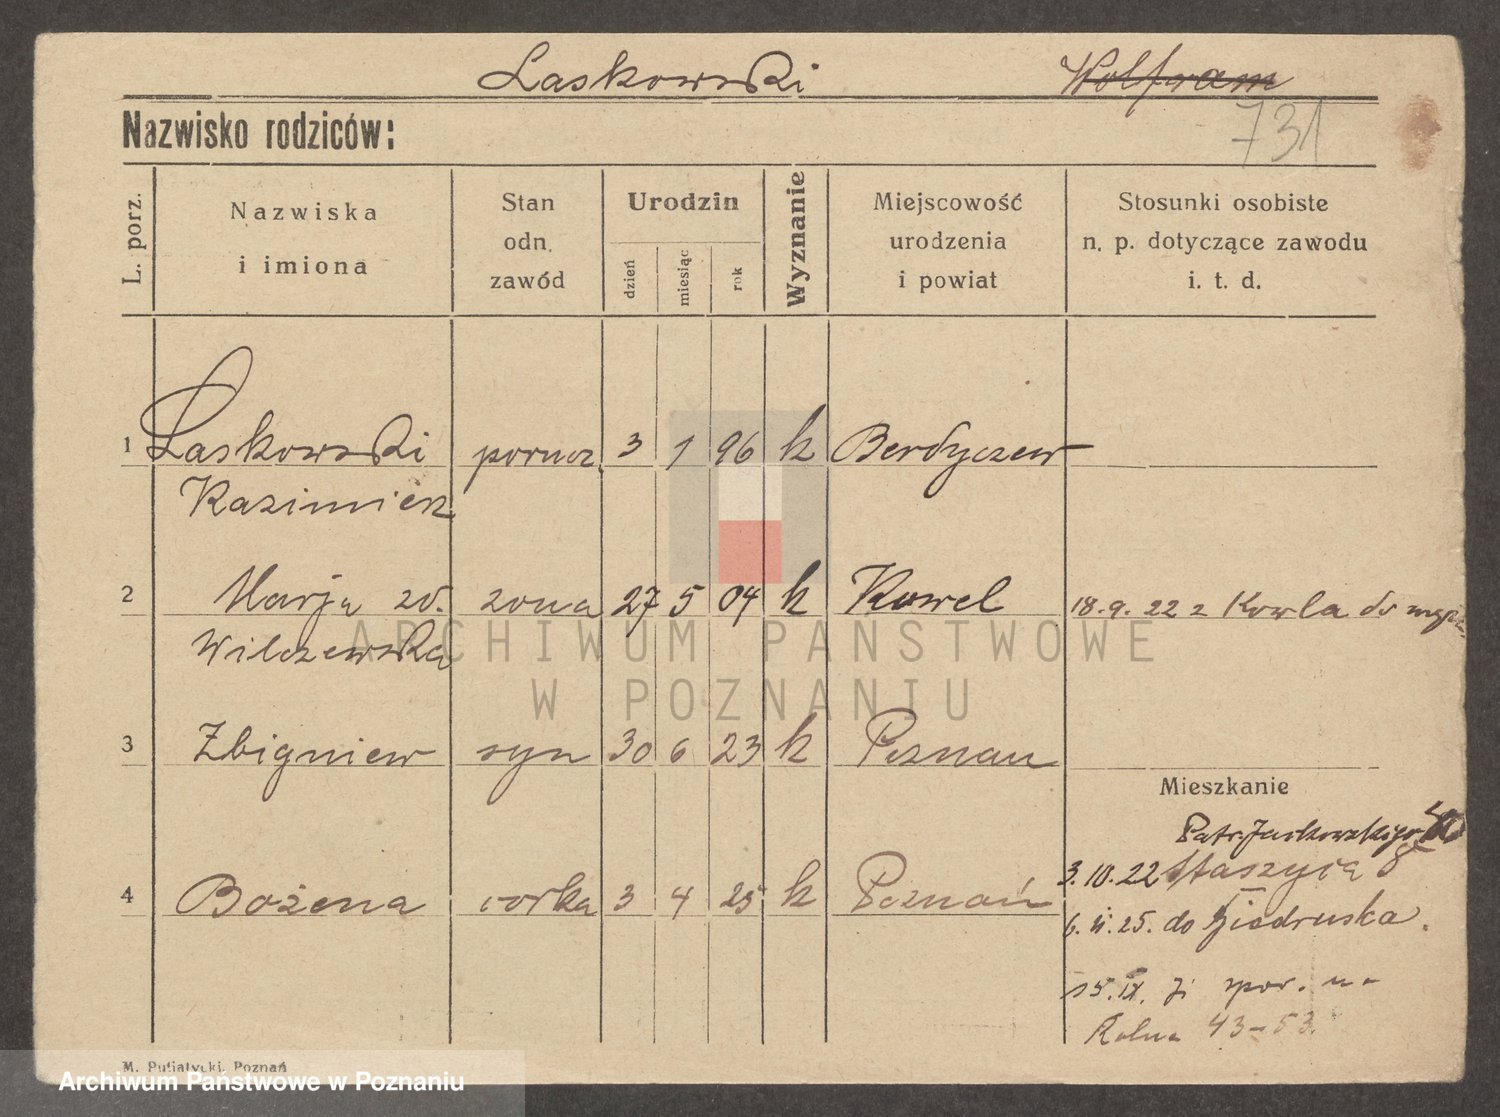 Laskowski Wolfram
731
Nazwisko rodziców:
L. porz.
Nazwiska
i imiona
Stan
odn.
zawód
Urodzin
dzień
miesiąc
rok
Wyznanie
Miejscowość
urodzenia
i powiat
Stosunki osobiste
n. p. dotyczące zawodu
i. t. d.
1 Laskowski porucz. 3 1 96 k Berdyczew
Kazimierz
2 Marja zd. zona 27 5 04 k Kowel 18.9.22 z Kowla do
Wilczewska
ARCHIWUM PAŃSTWOWE
W POZNANIU
3 Zbigniew syn 30 6 23 k Poznań
Mieszkanie
Patr. Jackowskiego
3.10.22 Staszyca 8
4 Bożena corka 3 4 25 k Poznań
6. 25. do Biedruska.
15. IX.
Rolna 43-53.
M. Putiatycki, Poznań
Archiwum Państwowe w Poznaniu